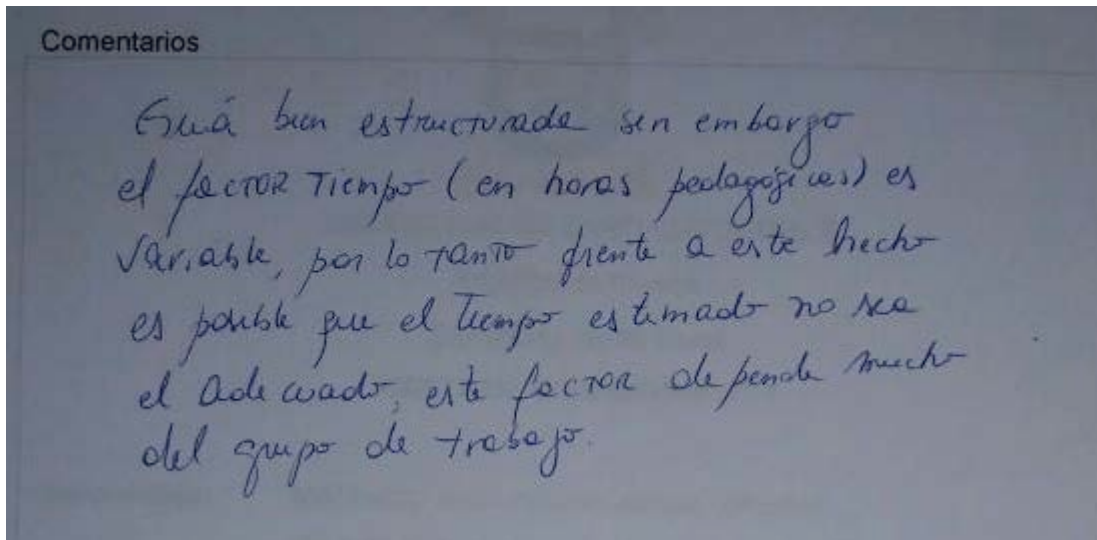 Comentarios
Guiá bien estructurada sin embargo
el factor Tiempo (en horas pedagógicas) es
variable, por lo tanto frente a este hecho
es posible que el Tiempo estimado no sea
el adecuado, este factor depende mucho
del grupo de trabajo.